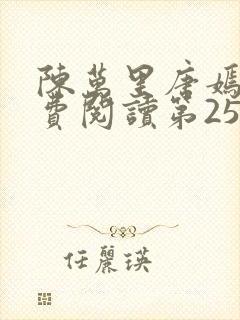 陳萬里唐嫣
費閱讀第25
任麗瑛